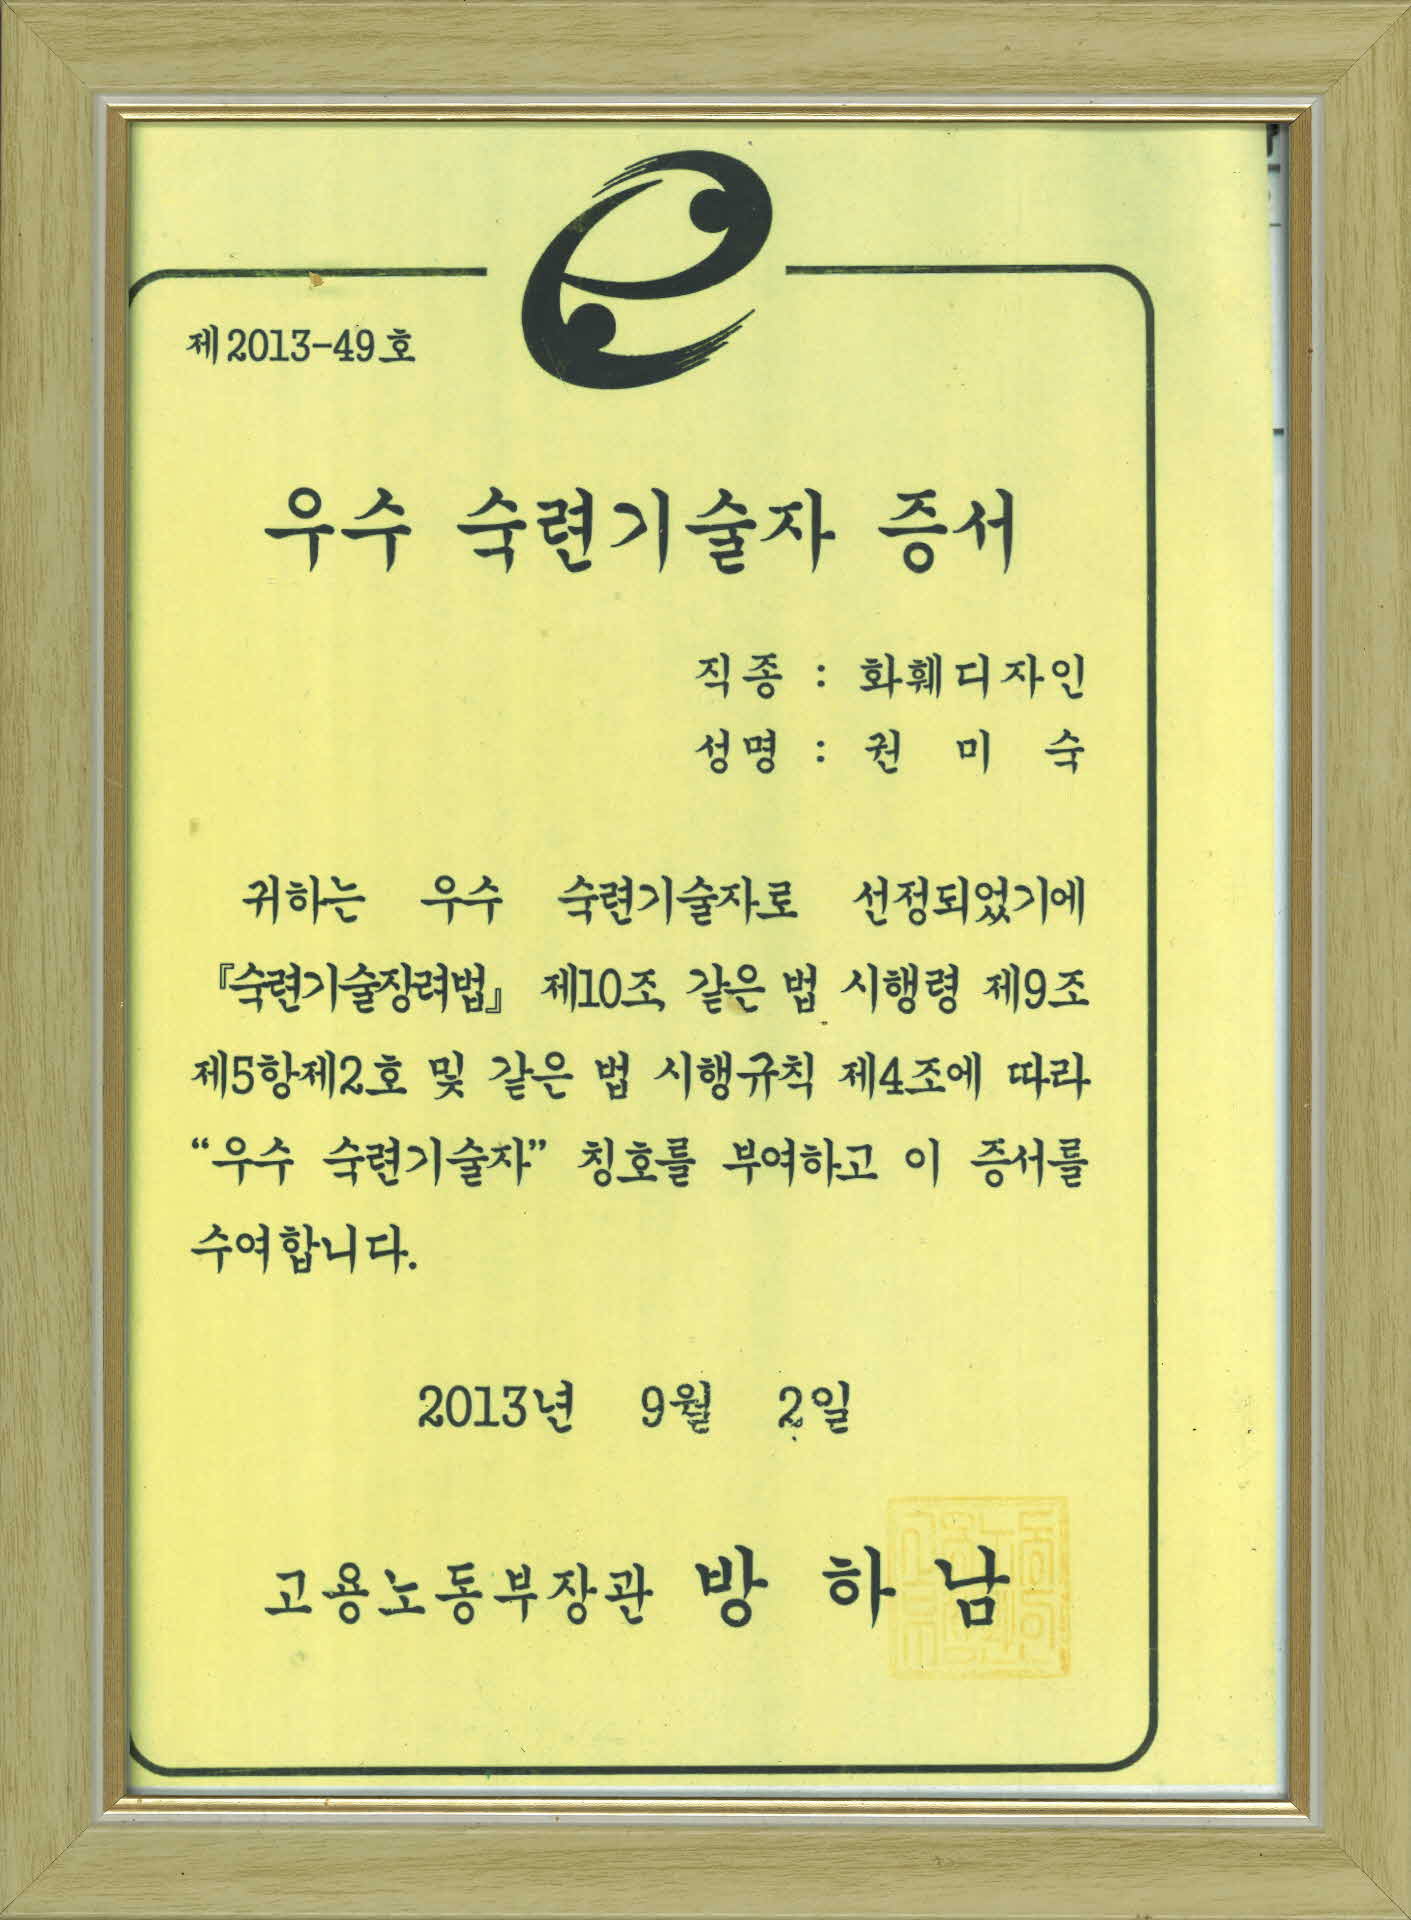 제2013-49호
우수 숙련기술자 증서
직종 : 화훼디자인
성명 : 권 미 숙
귀하는 우수 숙련기술자로 선정되었기에
『숙련기술장려법』 제10조, 같은 법 시행령 제9조
제5항제2호 및 같은 법 시행규칙 제4조에 따라
“우수 숙련기술자” 칭호를 부여하고 이 증서를
수여합니다.
2013년 9월 2일
고용노동부장관 방 하 남